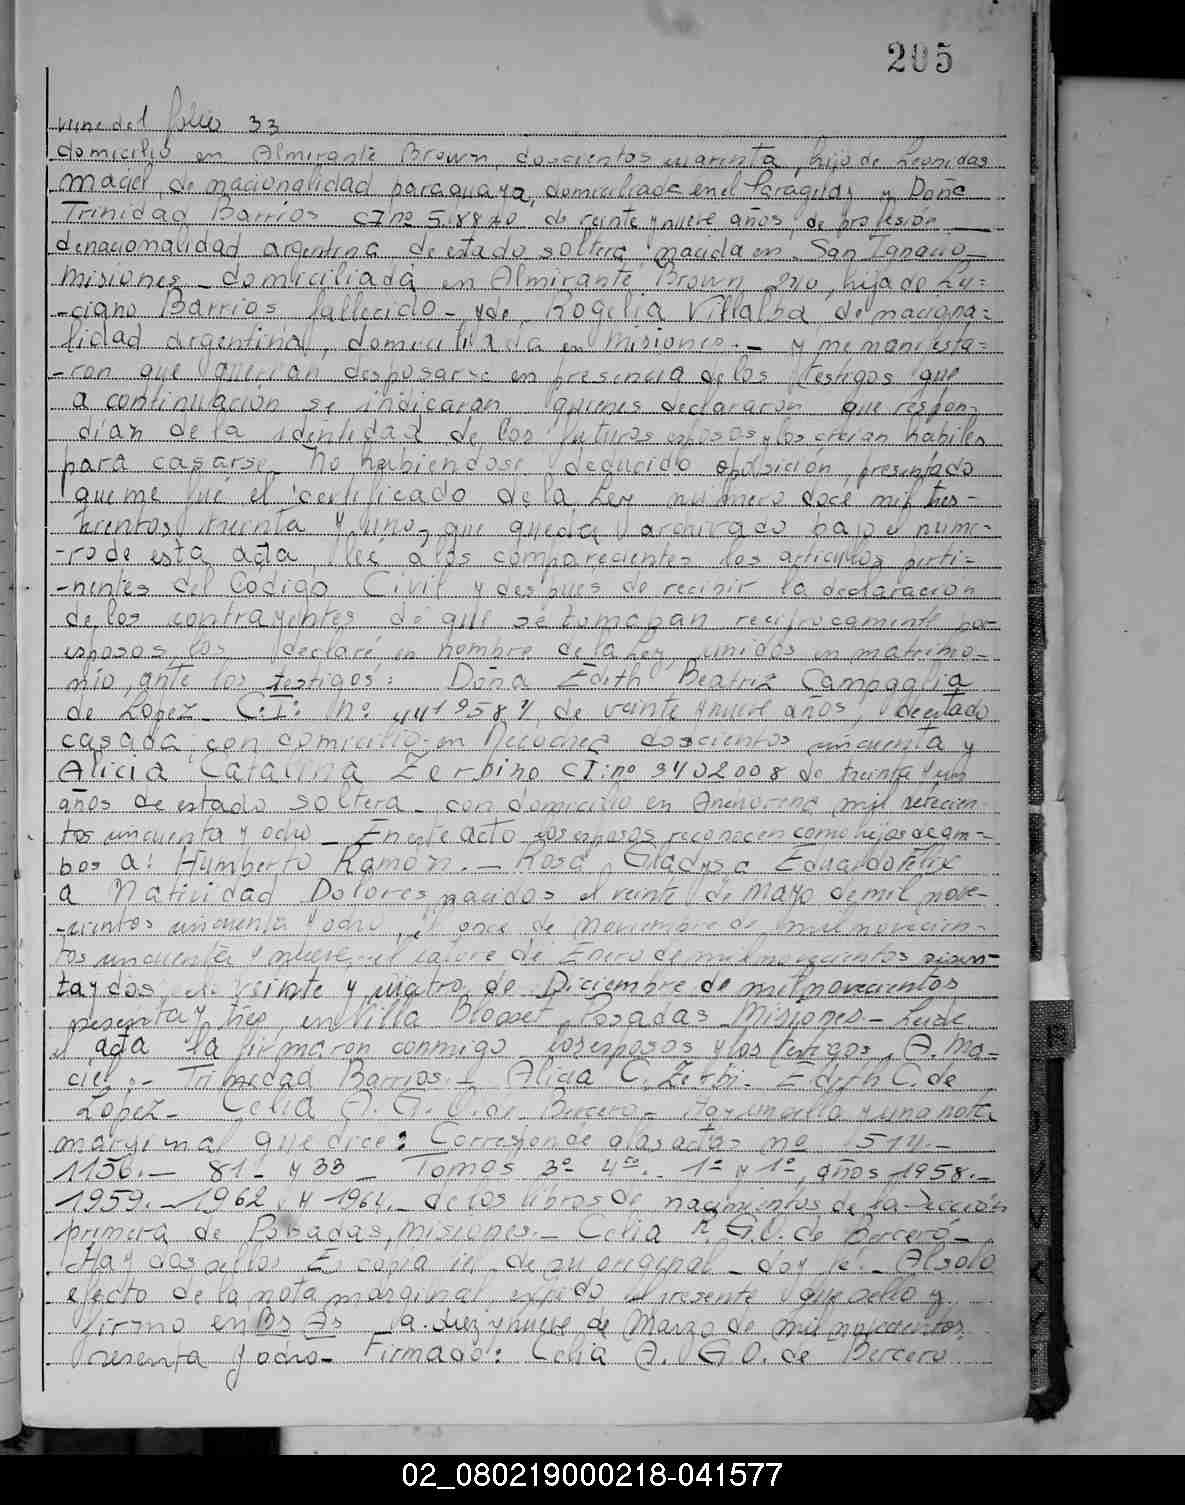 205
viene del folio 33
domicilio en Almirante Brown, doscientos cuarenta, hijo de Leonidas
Maciel, de nacionalidad paraguaya, domiciliada en el Paraguay y Doña
Trinidad Barrios CI nº de veinte y nueve años, de profesión
de nacionalidad argentina de estado soltera nacida en San Ignacio
Misiones domiciliada en Almirante Brown 240, hija de Lu=
-ciano Barrios fallecido - y de Rogelia Villalba de naciona=
lidad argentina, domiciliada en Misiones.- y me manifesta=
-ron que querian desposarse en presencia de los testigos que
a continuación se indicaran quienes declararon que respon-
dian de la identidad de los futuros esposos y los creian habiles
para casarse. No habiendose deducido oposición, presentado
que me fué el certificado de la Ley numero doce mil tres-
cientos treinta y uno, que queda archivado bajo el nume-
-ro de esta acta, leí a los comparecientes los articulos perti-
-nentes del Codigo Civil y despues de recibir la declaracion
de los contrayentes de que se tomaban reciprocamente por
esposos, los declaré en nombre de la Ley, unidos en matrimo-
nio, ante los testigos: Doña Edith Beatriz Campaglia
de Lopez C.I. nº. de veinte y nueve años, de estado
casada con domicilio en Necochea doscientos cincuenta y
Alicia Catalina Zerbino CI nº 3402008 de treinta y un
años de estado soltera - con domicilio en Anchorena mil setecien-
tos cincuenta y ocho - En este acto los esposos reconocen como hijos de am-
bos a: Humberto Ramón.- Rosa Gladys a Eduardo Felix
a Natividad Dolores nacidos el veinte de Mayo de mil nove-
-cientos cincuenta y ocho, el once de Noviembre de mil novecien-
tos cincuenta y nueve, el catorce de Enero de mil novecientos sesen-
ta y dos, el veinte y cuatro de Diciembre de mil novecientos
sesenta y tres, en Villa Blosset, Posadas Misiones - Leida
el acta la firmaron conmigo los esposos y los testigos. A. Ma=
ciel.- Trinidad Barrios.- Alicia C. Zerbi- Edith C. de
López- Celia A. G. O. de Bercero- Hay un sello y una nota
marginal que dice: Corresponde a las actas nº 514.-
1156.- 81- y 33 - Tomos 3º 4º.- 1º y 1º, años 1958.-
1959.- 1962 y 1964.- de los libros de nacimientos de la sección
primera de Posadas, Misiones.- Celia A. G.O. de Bercero-
Hay dos sellos Es copia fiel de su original - doy fé.- Al solo
efecto de la nota marginal, expido el presente que sello y
firmo en Bs As a diez y nueve de Marzo de mil novecientos
sesenta y ocho- Firmado: Celia A. G O. de Bercero
02_080219000218-041577